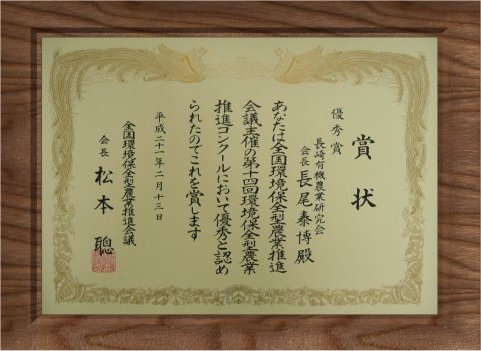 賞状
優秀賞
長崎有機農業研究会
会長 長尾泰博殿
あなたは全国環境保全型農業推進
会議主催の第十四回環境保全型農業
推進コンクールにおいて優秀と認め
られたのでこれを賞します
平成二十一年二月十三日
全国環境保全型農業推進会議
会長 松本聰